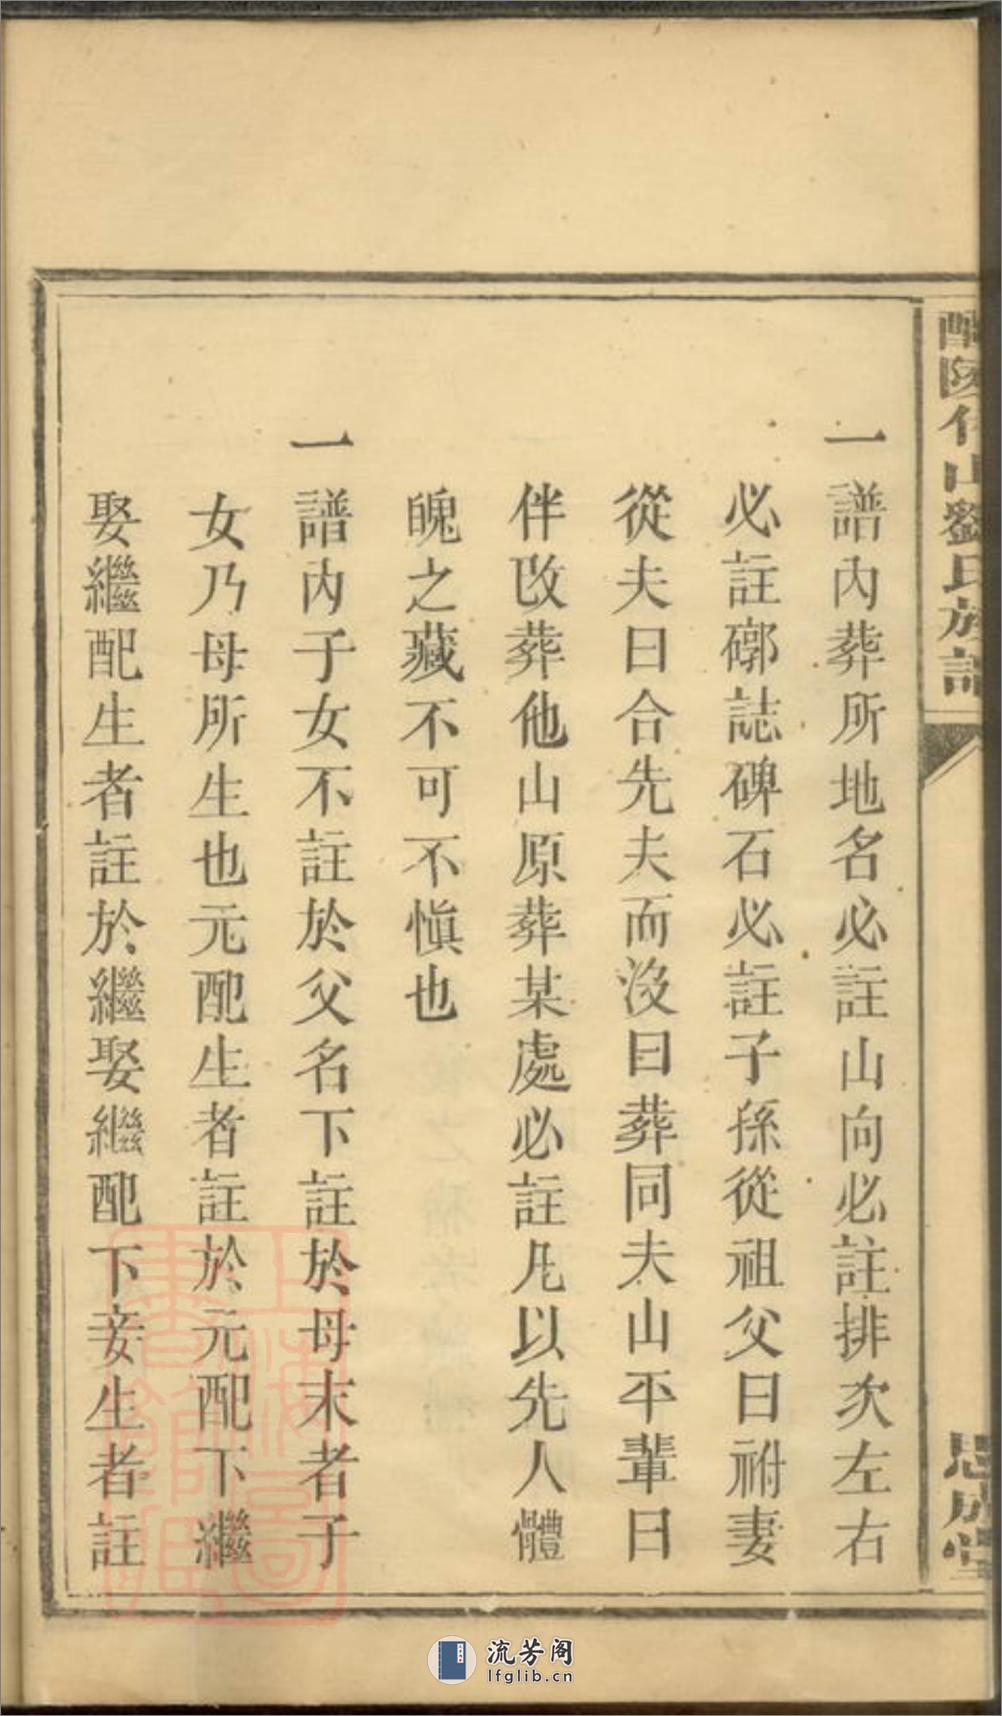 一譜內葬所地名必註山向必註排次左右
必註𥕏誌碑石必註子孫從祖父曰祔妻
從夫曰合先夫而沒曰葬同夫山平輩曰
伴改葬他山原葬某處必註凡以先人體
魄之藏不可不愼也
一譜內子女不註於父名下註於母末者子
女乃母所生也元配生者註於元配下繼
娶繼配生者註於繼娶繼配下妾生者註
山劉氏族
思成堂
流芳阁
lfglib.cn